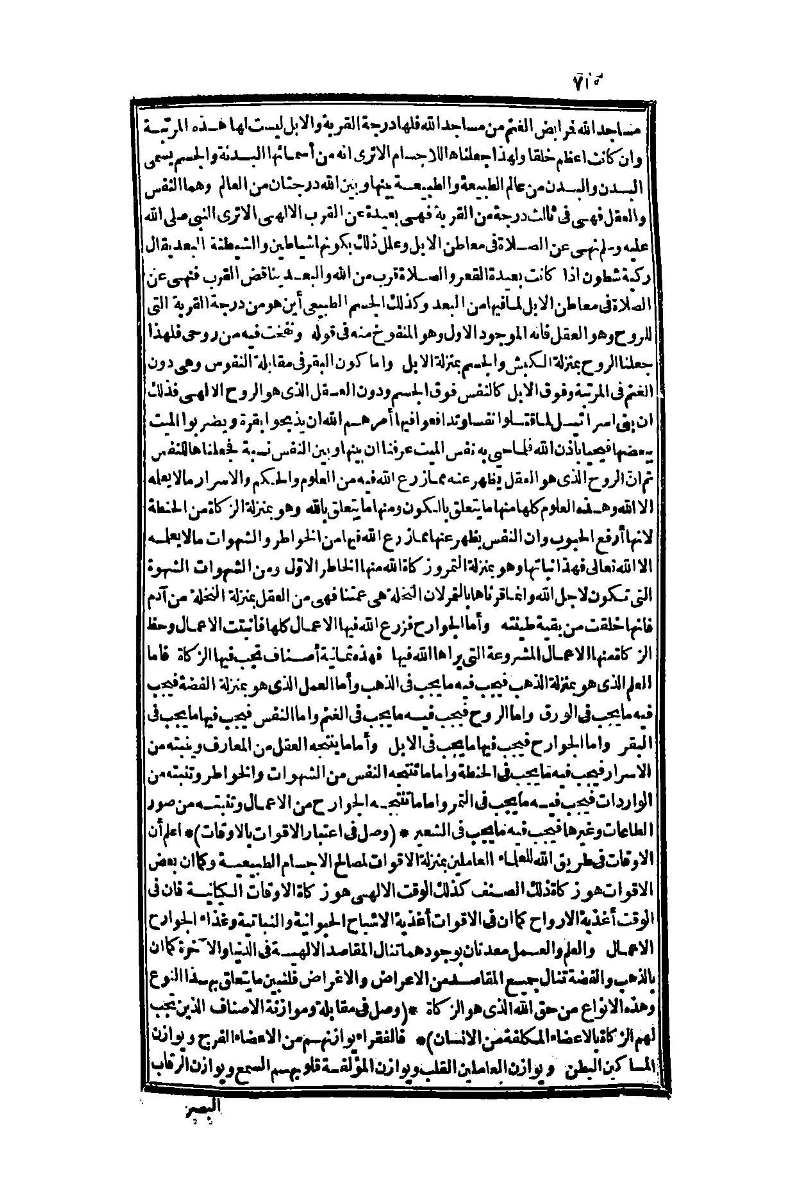 ٧١٥
مساجد الله فرابض الغنم من مساجد الله فلها درجة القربة والابل ليست لها هذه المرتبة
وان كانت اعظم خلقا ولهذا جعلناها للاجسام الاترى انه من أسمائها البدنة والجسم يسمى
البدن والبدن من عالم الطبيعة والطبيعة بينها وبين الله درجتان من العالم وهما النفس
والعقل فهى فى ثالث درجة من القربة فهى بعيدة عن القرب الالهى الاترى النبى صلى الله
عليه وسلم نهى عن الصلاة فى معاطن الابل وعلل ذلك بكونها شياطين والشيطنة البعد يقال
ركبة شطون اذا كانت بعيدة القعر والصلاة قرب من الله والبعد يناقض القرب فنهى عن
الصلاة فى معاطن الابل لما فيها من البعد وكذلك الجسم الطبيعى أين هو من درجة القربة التى
للروح وهو العقل فانه الموجود الاول وهو المنفوخ منه فى قوله ونفخت فيه من روحى فلهذا
جعلنا الروح بمنزلة الكبش والجسم بمنزلة الابل واما كون البقر فى مقابلة النفوس وهى دون
الغنم فى المرتبة وفوق الابل كالنفس فوق الجسم ودون العقل الذى هو الروح الالهى فذلك
ان بنى اسرائيل لما قتلوا نفسا وتدافعوا فيها أمرهم الله ان يذبحوا بقرة ويضربوا الميت
ببعضها فيحيا باذن الله فلما حى به نفس الميت عرفنا ان بينها وبين النفس نسبة فجعلناها للنفس
ثم ان الروح الذى هو العقل يظهر عنه مما زرع الله فيه من العلوم والحكم والاسرار مالا يعلمه
الا الله وهذه العلوم كلها منها ما يتعلق بالكون ومنها ما يتعلق بالله وهو بمنزلة الزكاة من الحنطة
لانها أرفع الحبوب وان النفس يظهر عنها مما زرع الله فيها من الخواطر والشهوات مالا يعلمه
الا الله تعالى فهذا نباتها وهو بمنزلة التمر وزكاة الله منها الخاطر الاول ومن الشهوات الشهوة
التى تكون لاجل الله وانما قرناها بالتمر لان النخلة هى عمتنا فهى من العقل بمنزلة النخلة من آدم
فانها خلقت من بقية طينته وأما الجوارح فزرع الله فيها الاعمال كلها فانبتت الاعمال وحظ
الزكاة منها الاعمال المشروعة التى يراها الله فيها فهذه ثمانية أصناف تجب فيها الزكاة فاما
العلم الذى هو بمنزلة الذهب فيجب فيه ما يجب فى الذهب وأما العمل الذى هو بمنزلة الفضة فيجب
فيه ما يجب فى الورق واما الروح فيجب فيه ما يجب فى الغنم واما النفس فيجب فيها ما يجب فى
البقر واما الجوارح فيجب فيها ما يجب فى الابل وأما ما ينتجه العقل من المعارف وينبته من
الاسرار فيجب فيه ما يجب فى الحنطة واما ما تنتجه النفس من الشهوات والخواطر وتنبته من
الواردات فيجب فيه ما يجب فى التمر واما ما تنتجه الجوارح من الاعمال وتنبته من صور
الطاعات وغيرها فيجب فيه ما يجب فى الشعير *(وصل فى اعتبار الاقوات بالاوقات)* اعلم أن
الاوقات فى طريق الله للعلماء العاملين بمنزلة الاقوات لمصالح الاجسام الطبيعية وكما ان بعض
الاقوات هو زكاة ذلك الصنف كذلك الوقت الالهى هو زكاة الاوقات الكيانية فان فى
الوقت أغذية الارواح كما ان فى الاقوات أغذية الاشباح الحيوانية والنباتية وغذاء الجوارح
الاعمال والعلم والعمل معدنان بوجودهما تنال المقاصد الالهية فى الدنيا والآخرة كما ان
بالذهب والفضة تنال جميع المقاصد من الاعراض والاغراض فلنبين ما يتعلق بهذا النوع
وهذه الانواع من حق الله الذى هو الزكاة *(وصل فى مقابلة وموازنة الاصناف الذين تجب
لهم الزكاة بالاعضاء المكلفة من الانسان)* فالفقراء يوازنهم من الاعضاء الفرج ويوازن
المساكين البطن ويوازن العاملين القلب ويوازن المؤلفة قلوبهم السمع ويوازن الرقاب
البصر